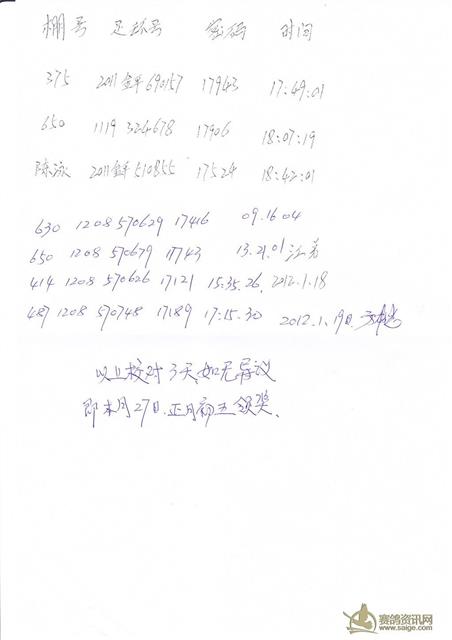 棚号 足环号 密码 时间
375 2011 690157 17943 17:49:01
650 1119 324678 17906 18:07:19
陈泳 2011 510855 17524 18:42:01
630 1208 570629 17416 09.16 04
650 1208 570679 17743 13.21.01 江苏
414 1208 570626 17121 15:35.26. 2012.1.18
487 1208 570748 17189 17:15.30 2012.1.19日.
以上校对3天,如无异议
即本月27日.正月初五领奖.
赛鸽资讯网
www.saige.com